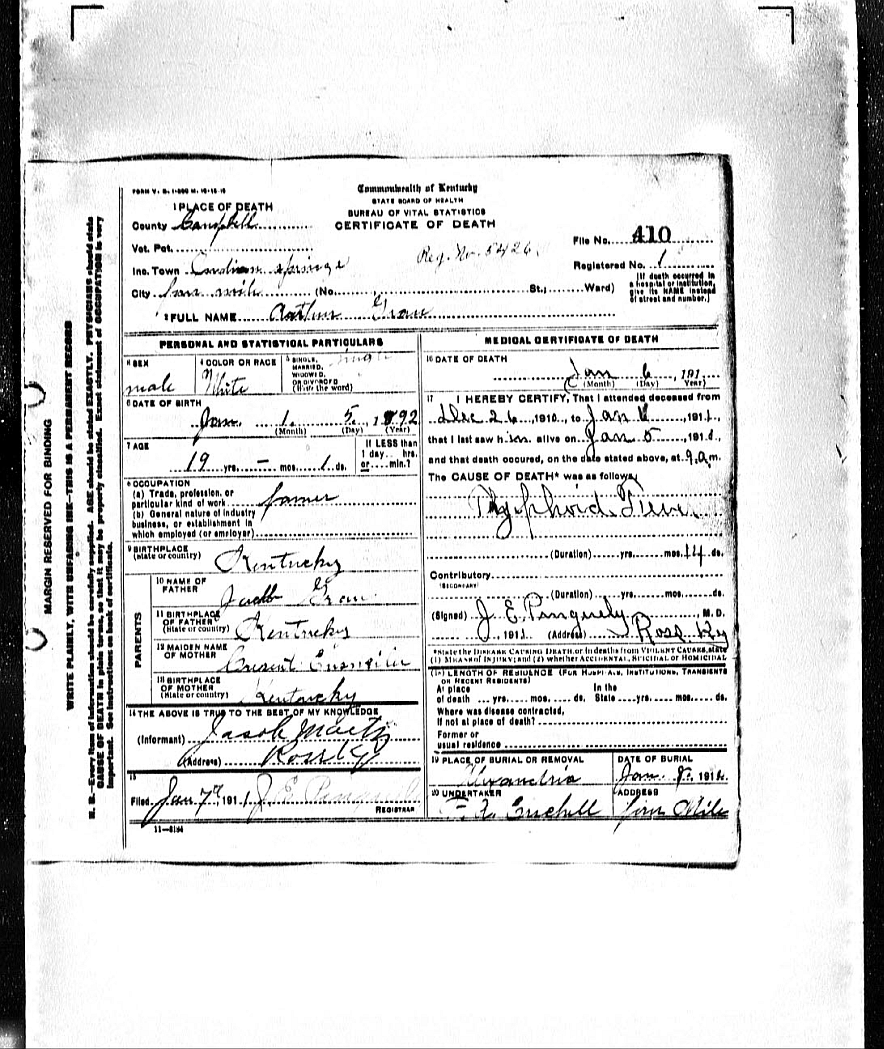 FORM V. S. 1-
Commonwealth of Kentucky
STATE BOARD OF HEALTH
BUREAU OF VITAL STATISTICS
CERTIFICATE OF DEATH
1 PLACE OF DEATH
County Campbell
Vot. Pct.
Inc. Town Indian Springs
City Four Mile (No. St.; Ward)
Reg. No. 5426.
File No. 410
Registered No. 1
[If death occurred in a hospital or institution, give its NAME instead of street and number.]
2 FULL NAME Arthur
PERSONAL AND STATISTICAL PARTICULARS
3 SEX male
4 COLOR OR RACE White
5 SINGLE, MARRIED, WIDOWED, OR DIVORCED (Write the word) Single
6 DATE OF BIRTH
Jan. 1. 5, 1892
(Month) (Day) (Year)
7 AGE
19 yrs. – mos. 1 ds.
If LESS than 1 day hrs. or min.?
8 OCCUPATION
(a) Trade, profession, or particular kind of work farmer
(b) General nature of industry business, or establishment in which employed (or employer)
9 BIRTHPLACE
(State or country) Kentucky
PARENTS
10 NAME OF FATHER Jacob
11 BIRTHPLACE OF FATHER
(State or country) Kentucky
12 MAIDEN NAME OF MOTHER
13 BIRTHPLACE OF MOTHER
(State or country) Kentucky
14 THE ABOVE IS TRUE TO THE BEST OF MY KNOWLEDGE
(Informant) Jacob
(Address) Ross Ky
15
Filed Jan 7th 1911 J. E. Pinguely
REGISTRAR
11-5184
MEDICAL CERTIFICATE OF DEATH
16 DATE OF DEATH
Jan 6, 191
(Month) (Day) (Year)
17 I HEREBY CERTIFY, That I attended deceased from
Dec 26, 1910, to Jan 6, 1911,
that I last saw him alive on Jan 5, 1911,
and that death occured, on the date stated above, at 9 a.m.
The CAUSE OF DEATH* was as follows:
Thyphoid Fever
(Duration) yrs. mos. 14 ds.
Contributory
(SECONDARY)
(Duration) yrs. mos. ds.
(Signed) J. E. Pinguely, M. D.
, 1911 (Address) Ross Ky
*State the DISEASE CAUSING DEATH, or in deaths from VIOLENT CAUSES, state
(1) MEANS OF INJURY; and (2) whether ACCIDENTAL, SUICIDAL or HOMICIDAL
18 LENGTH OF RESIDENCE (FOR HOSPITALS, INSTITUTIONS, TRANSIENTS OR RECENT RESIDENTS)
At place of death yrs. mos. ds. In the State yrs. mos. ds.
Where was disease contracted, if not at place of death?
Former or usual residence
19 PLACE OF BURIAL OR REMOVAL
Alexandria
DATE OF BURIAL
Jan. 8, 1911
20 UNDERTAKER
ADDRESS
Four Mile
MARGIN RESERVED FOR BINDING
WRITE PLAINLY, WITH UNFADING INK—THIS IS A PERMANENT RECORD
N. B.—Every item of information should be carefully supplied. AGE should be stated EXACTLY. PHYSICIANS should state
CAUSE OF DEATH in plain terms, so that it may be properly classified. Exact statement of OCCUPATION is very
important. See instructions on back of certificate.